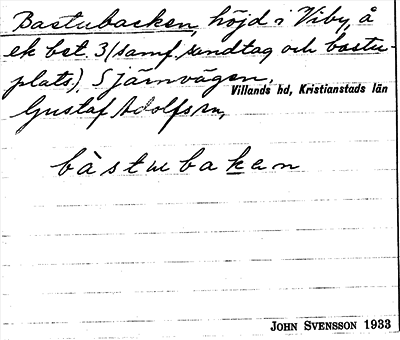 Bastubacken, höjd i Viby, å
ek bet. 3 (samf. sandtag och bastu-
plats), S järnvägen.
Villands hd, Kristianstads län
Gustaf Adolfs sn,
bàstubaken
JOHN SVENSSON 1933